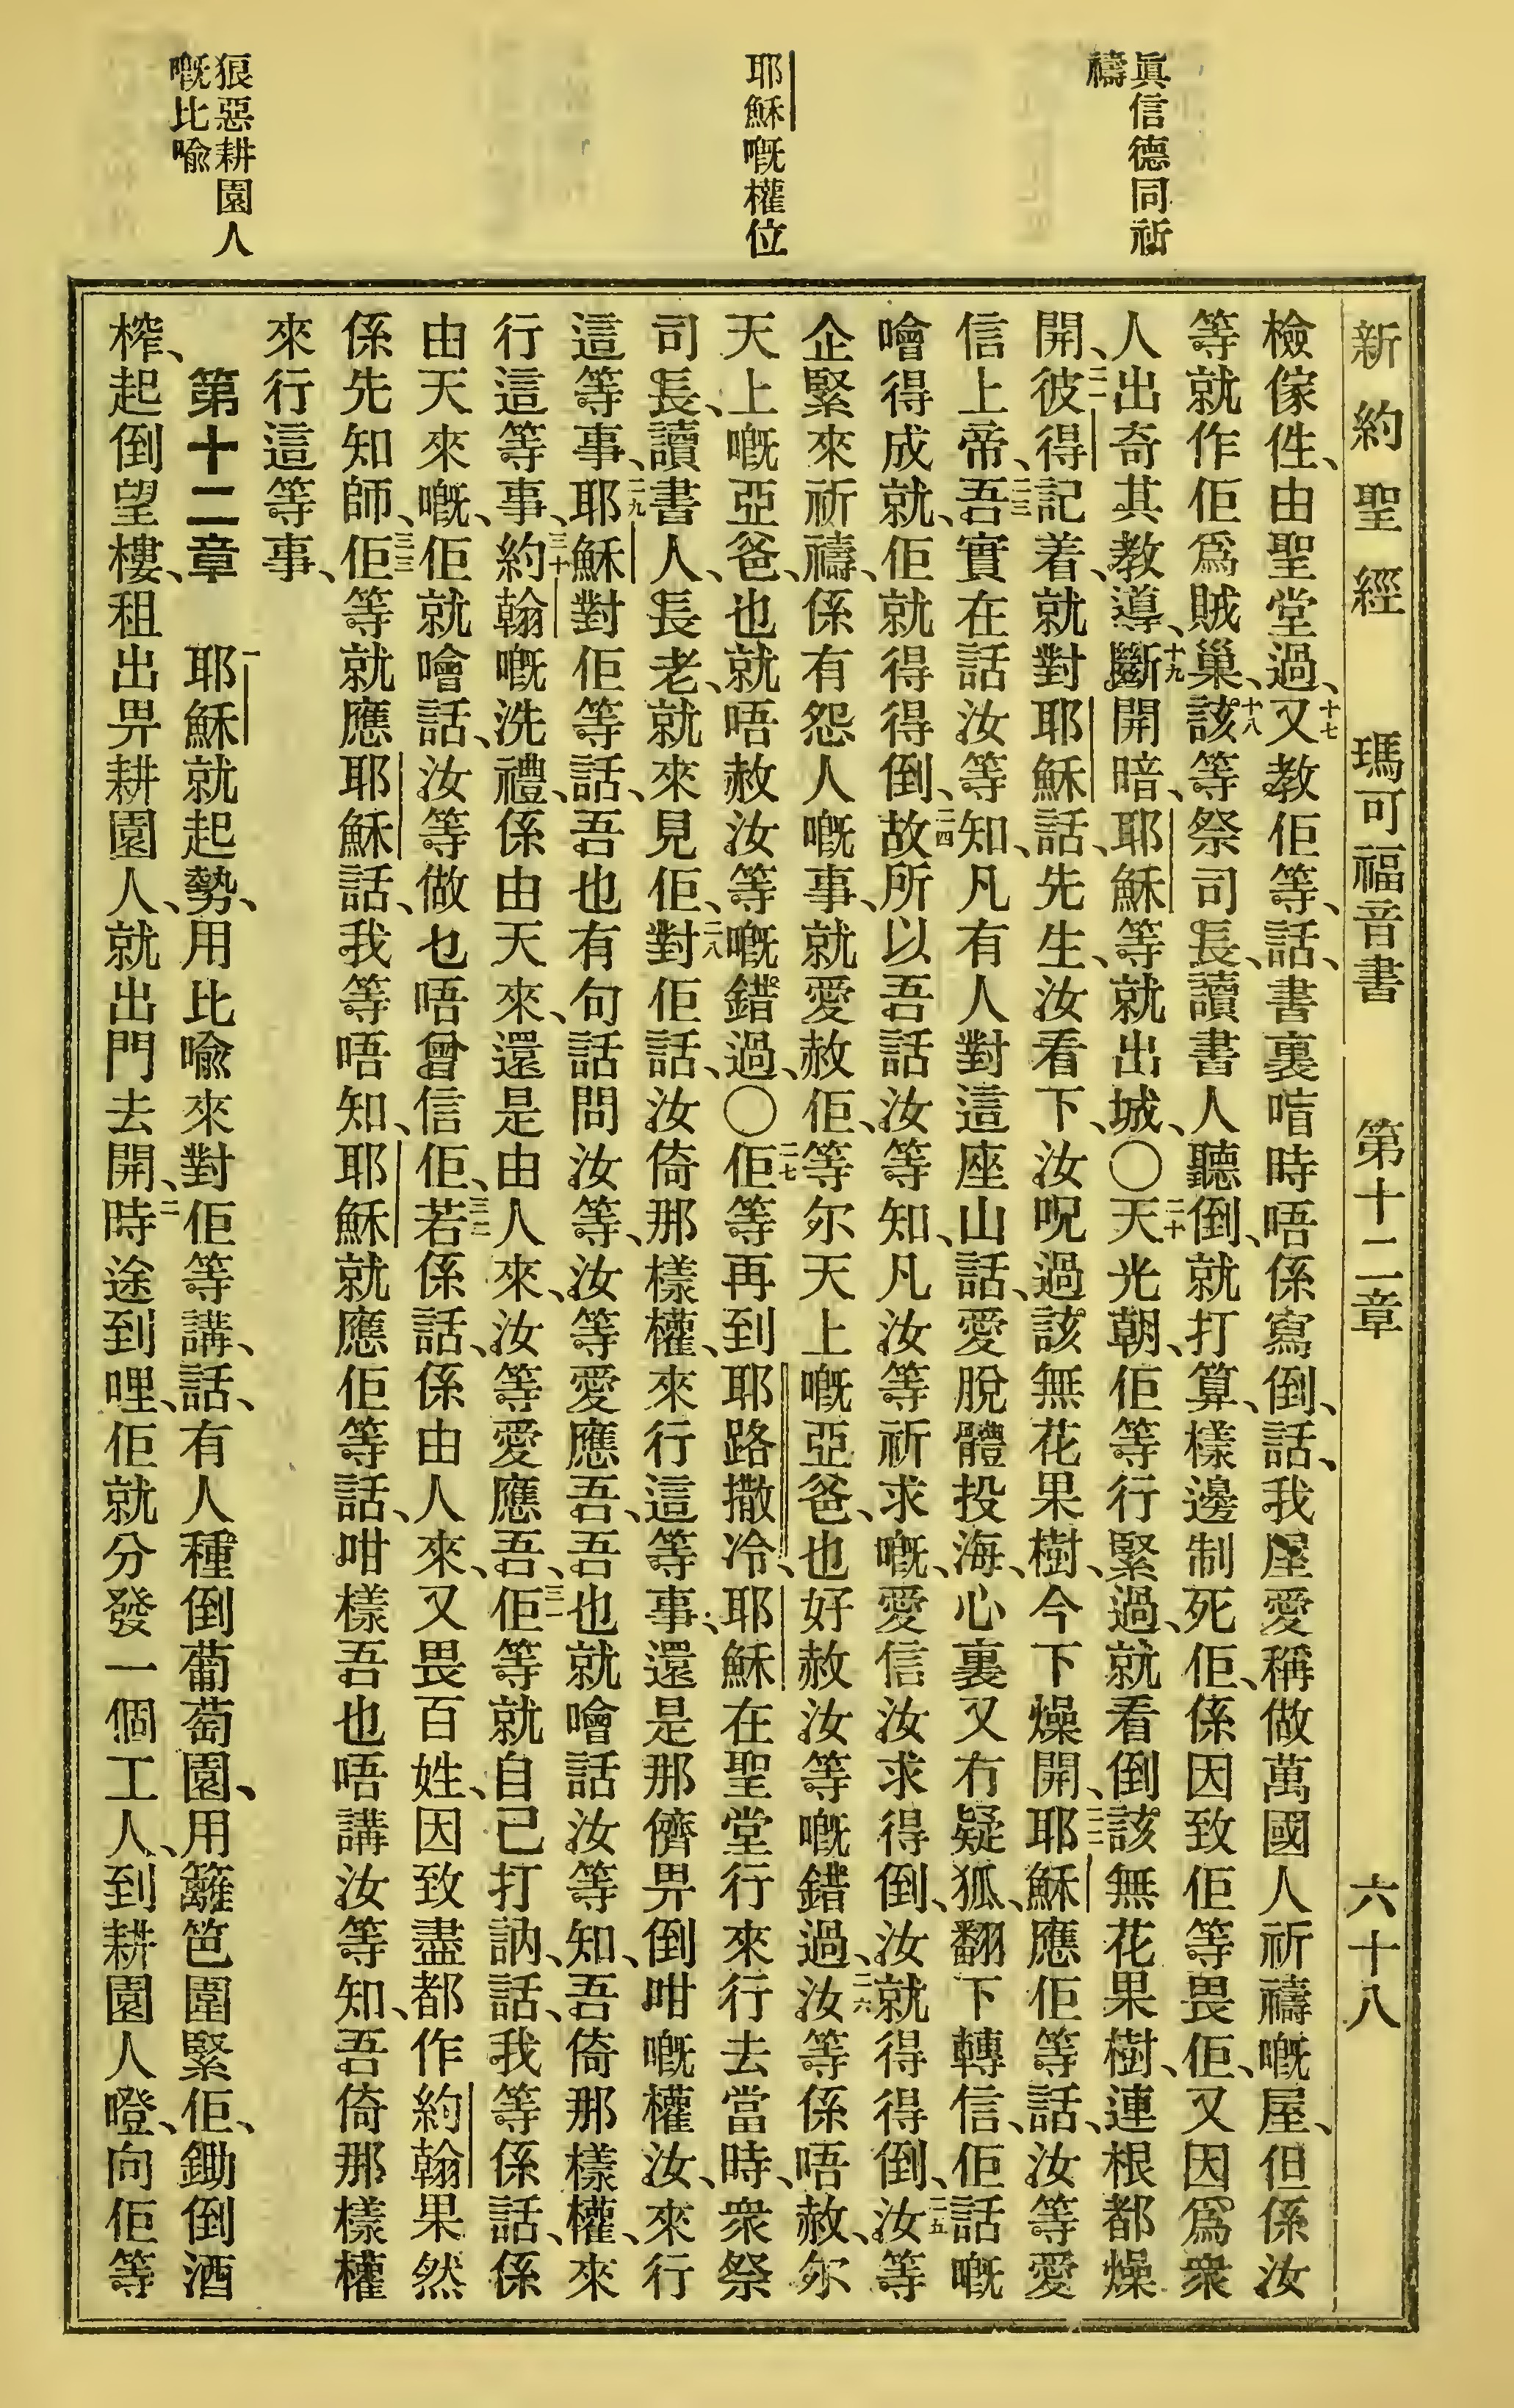 眞信德同祈
禱
耶穌嘅權位
狠惡耕園人
嘅比喩
新約聖經 瑪可福音書 第十二章 六十八
檢傢伩、由聖堂過、十七又教佢等、話、書裏喑時唔係寫倒、話、我屋愛稱做萬國人祈禱嘅屋、但係汝
等就作佢爲賊巢、十八該等祭司長、讀書人聽倒、就打算、樣邊制死佢、係因致佢等畏佢、又因爲衆
人出奇其教導、十九斷開暗、耶穌等就出城、〇二十天光朝、佢等行緊過、就看倒該無花果樹、連根都燥
開、二一彼得記着、就對耶穌話、先生、汝看下、汝呪過該無花果樹、今下燥開、二二耶穌應佢等話、汝等愛
信上帝、二三吾實在話汝等知、凡有人對這座山話、愛脫體投海、心裏又冇疑狐、翻下轉信、佢話嘅
噲得成就、佢就得得倒、二四故所以吾話汝等知、凡汝等祈求嘅、愛信汝求得倒、汝就得得倒、二五汝等
企緊來祈禱、係有怨人嘅事、就愛赦佢、等尔天上嘅亞爸、也好赦汝等嘅錯過、二六汝等係唔赦、尔
天上嘅亞爸、也就唔赦汝等嘅錯過、〇二七佢等再到耶路撒冷、耶穌在聖堂行來行去當時、衆祭
司長、讀書人、長老、就來見佢、二八對佢話、汝倚那樣權、來行這等事、還是那儕畀倒咁嘅權汝、來行
這等事、二九耶穌對佢等話、吾也有句話問汝等、汝等愛應吾、吾也就噲話汝等知、吾倚那樣權、來
行這等事、三十約翰嘅洗禮、係由天來、還是由人來、汝等愛應吾、三一佢等就自己打訥、話、我等係話、係
由天來嘅、佢就噲話、汝等做乜唔曾信佢、三二若係話、係由人來、又畏百姓、因致盡都作約翰果然
係先知師、三三佢等就應耶穌話、我等唔知、耶穌就應佢等話、咁樣吾也唔講汝等知、吾倚那樣權
來行這等事、
第十二章 一耶穌就起勢、用比喩來對佢等講、話、有人種倒葡萄園、用籬笆圍緊佢、鋤倒酒
榨、起倒望樓、租出畀耕園人、就出門去開、二時途到哩、佢就分發一個工人、到耕園人嶝、向佢等